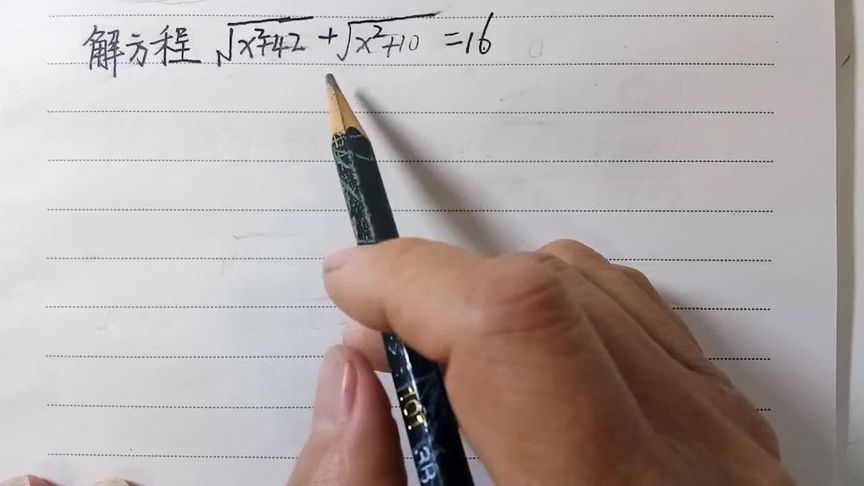 解方程 √(x²+42) + √(x²+10) = 16
101